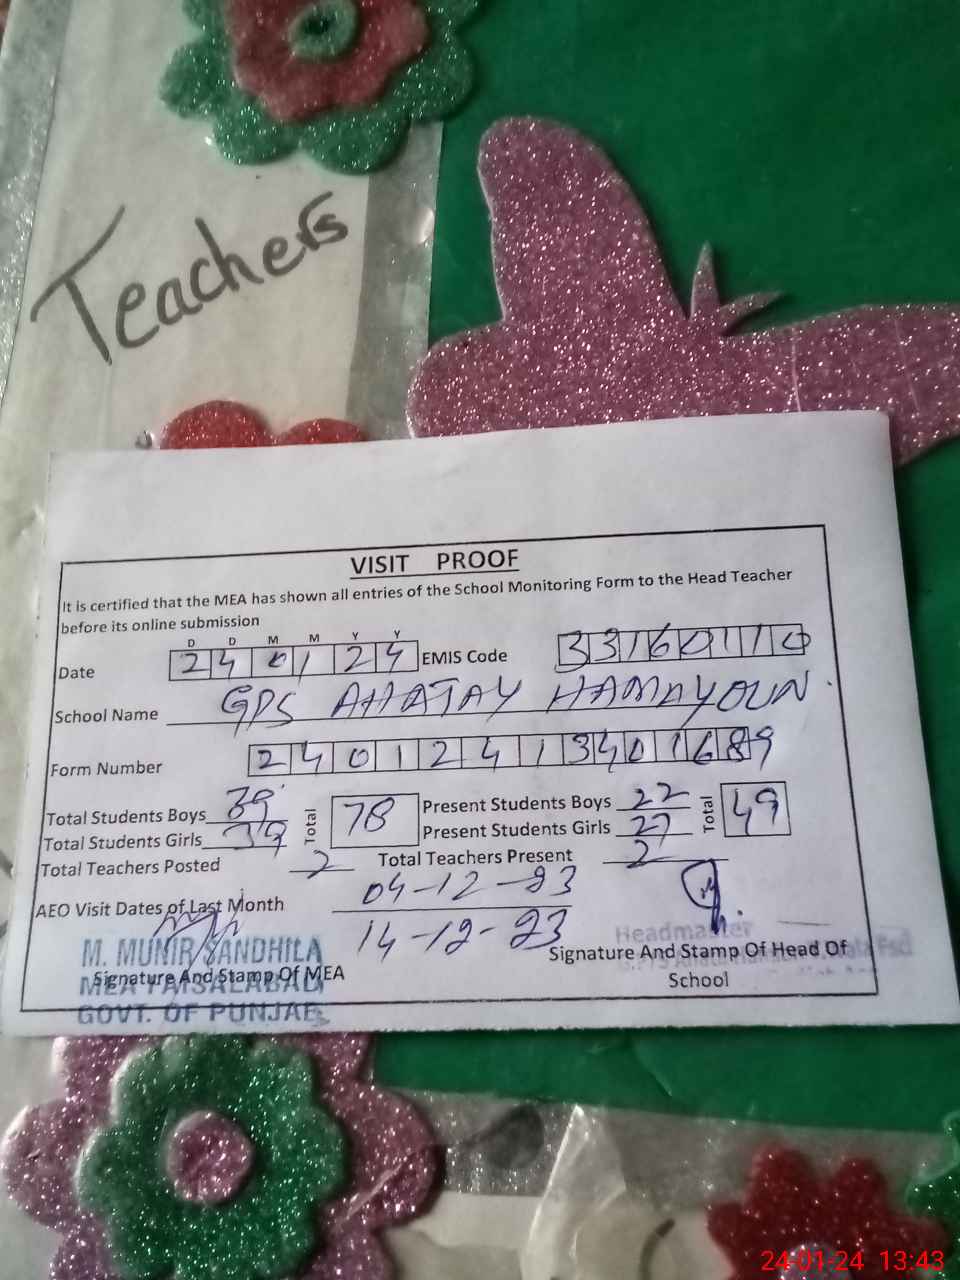 Teachers
VISIT PROOF
It is certified that the MEA has shown all entries of the School Monitoring Form to the Head Teacher
before its online submission
D D M M Y Y
Date 2 4 0 1 2 4 EMIS Code 3 3 1 6 0 1 1 0
School Name GPS AHATAY HAMAYOUN
Form Number 2 4 0 1 2 4 1 3 4 0 1 6 8 9
Total Students Boys 39 Total 78 Present Students Boys 22 Total 49
Total Students Girls 39 Present Students Girls 27
Total Teachers Posted 2 Total Teachers Present 2
AEO Visit Dates of Last Month 04-12-23
14-12-23
Headmaster
M. MUNIR SANDHILA
Signature And Stamp Of MEA
MEA FAISALABAD
GOVT. OF PUNJAB
Signature And Stamp Of Head Of
School
24-01-24 13:43